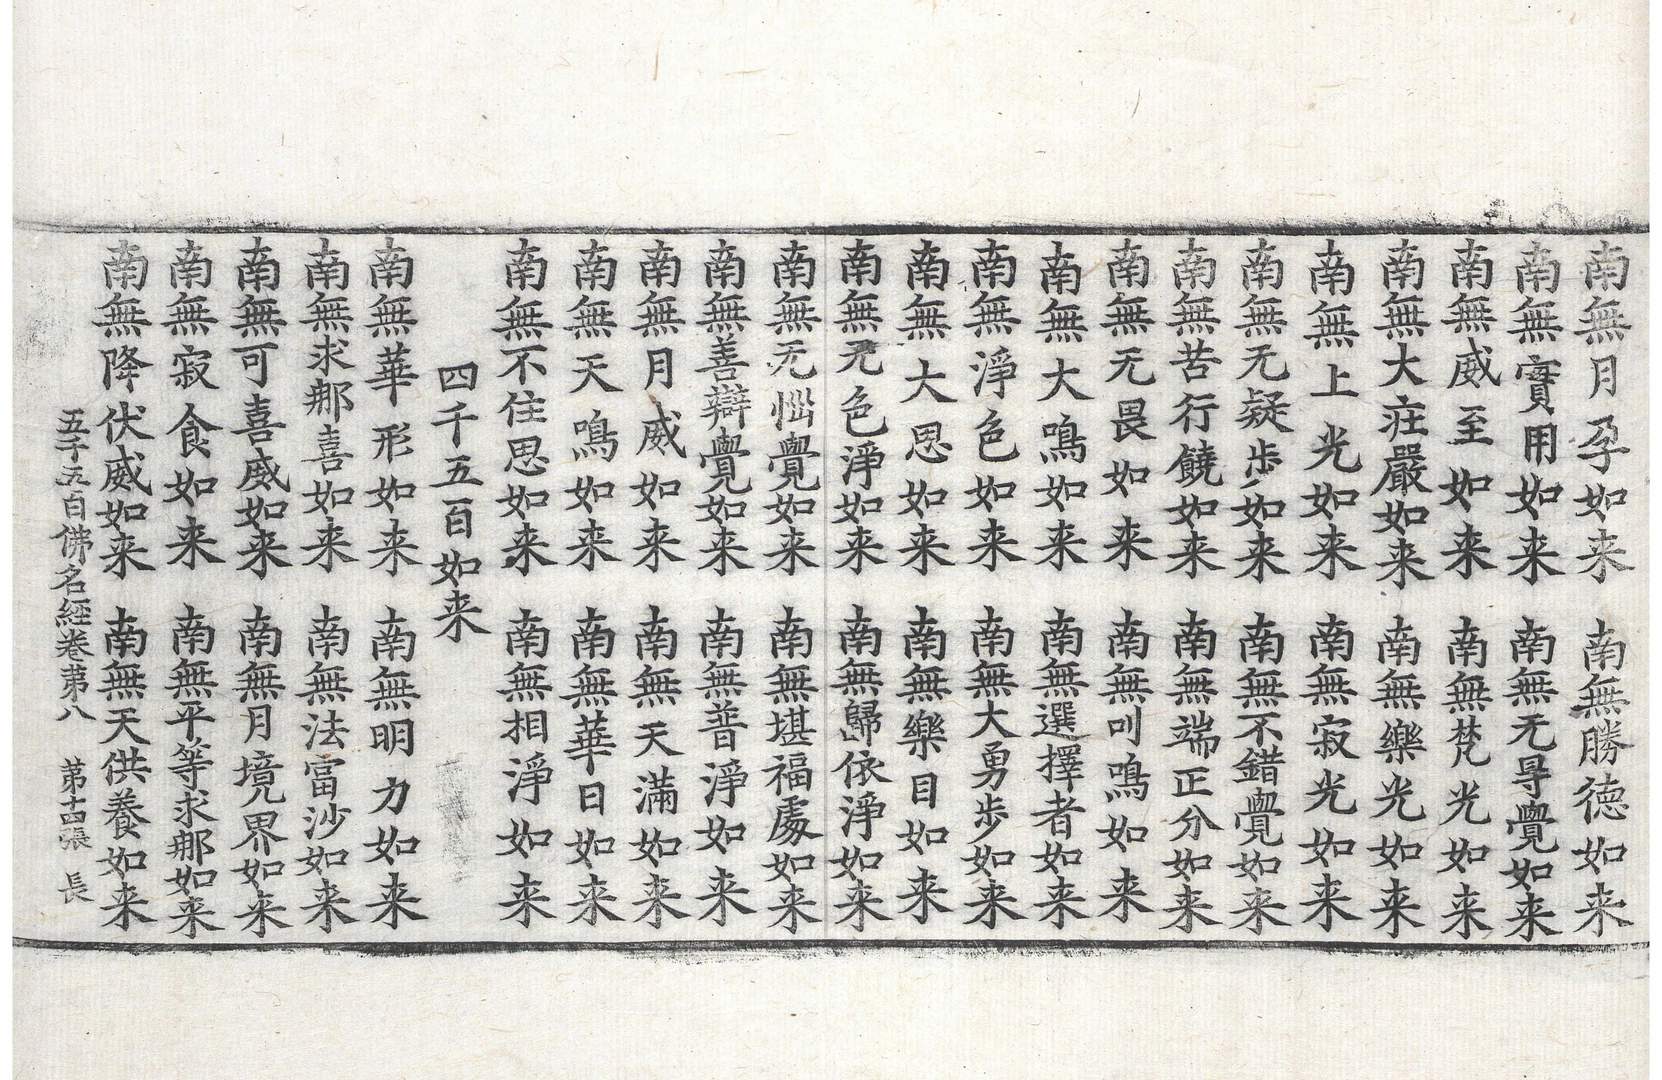 南無月孕如来　南無勝徳如来
南無實用如来　南無无㝵覺如来
南無威至如来　南無梵光如来
南無大莊嚴如来　南無樂光如来
南無上光如来　南無寂光如来
南無无疑步如来　南無不錯覺如来
南無苦行饒如来　南無端正分如来
南無无畏如来　南無叫鳴如来
南無大鳴如来　南無選擇者如来
南無淨色如来　南無大勇步如来
南無大思如来　南無樂目如来
南無无色淨如来　南無歸依淨如来
南無无惱覺如来　南無堪福處如来
南無善辯覺如来　南無普淨如来
南無月威如来　南無天滿如来
南無天鳴如来　南無華日如来
南無不住思如来　南無相淨如来
四千五百如来
南無華形如来　南無明力如来
南無求那喜如来　南無法富沙如来
南無可喜威如来　南無月境界如来
南無寂食如来　南無平等求那如来
南無降伏威如来　南無天供養如来
五千五百佛名経卷第八　第十四張　長